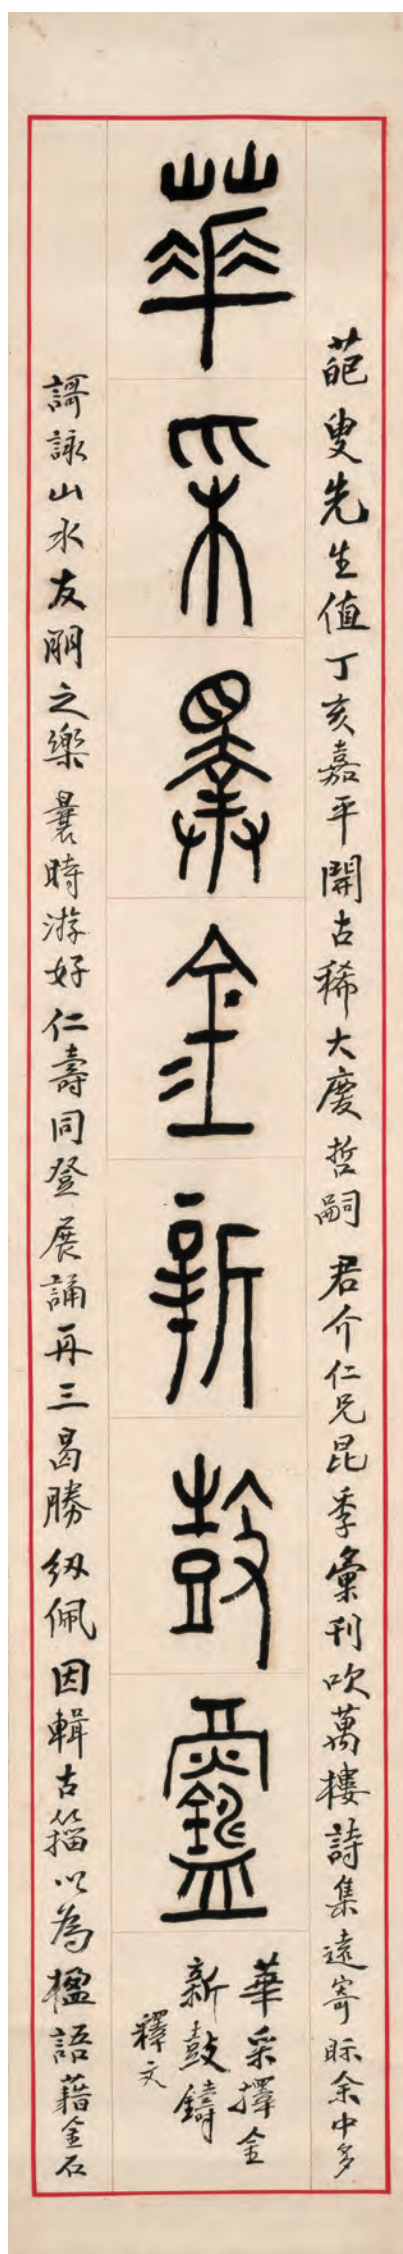 葩叟先生值丁亥嘉平開古稀大慶哲嗣君介仁兄昆季彙刊吹萬樓詩集遠寄眎余中多
華采擇金新鼓鑄
華采擇金
新鼓鑄
釋文
謌詠山水友朋之樂曩時游好仁壽同登展誦再三曷勝紉佩因輯古籀以為楹語藉金石